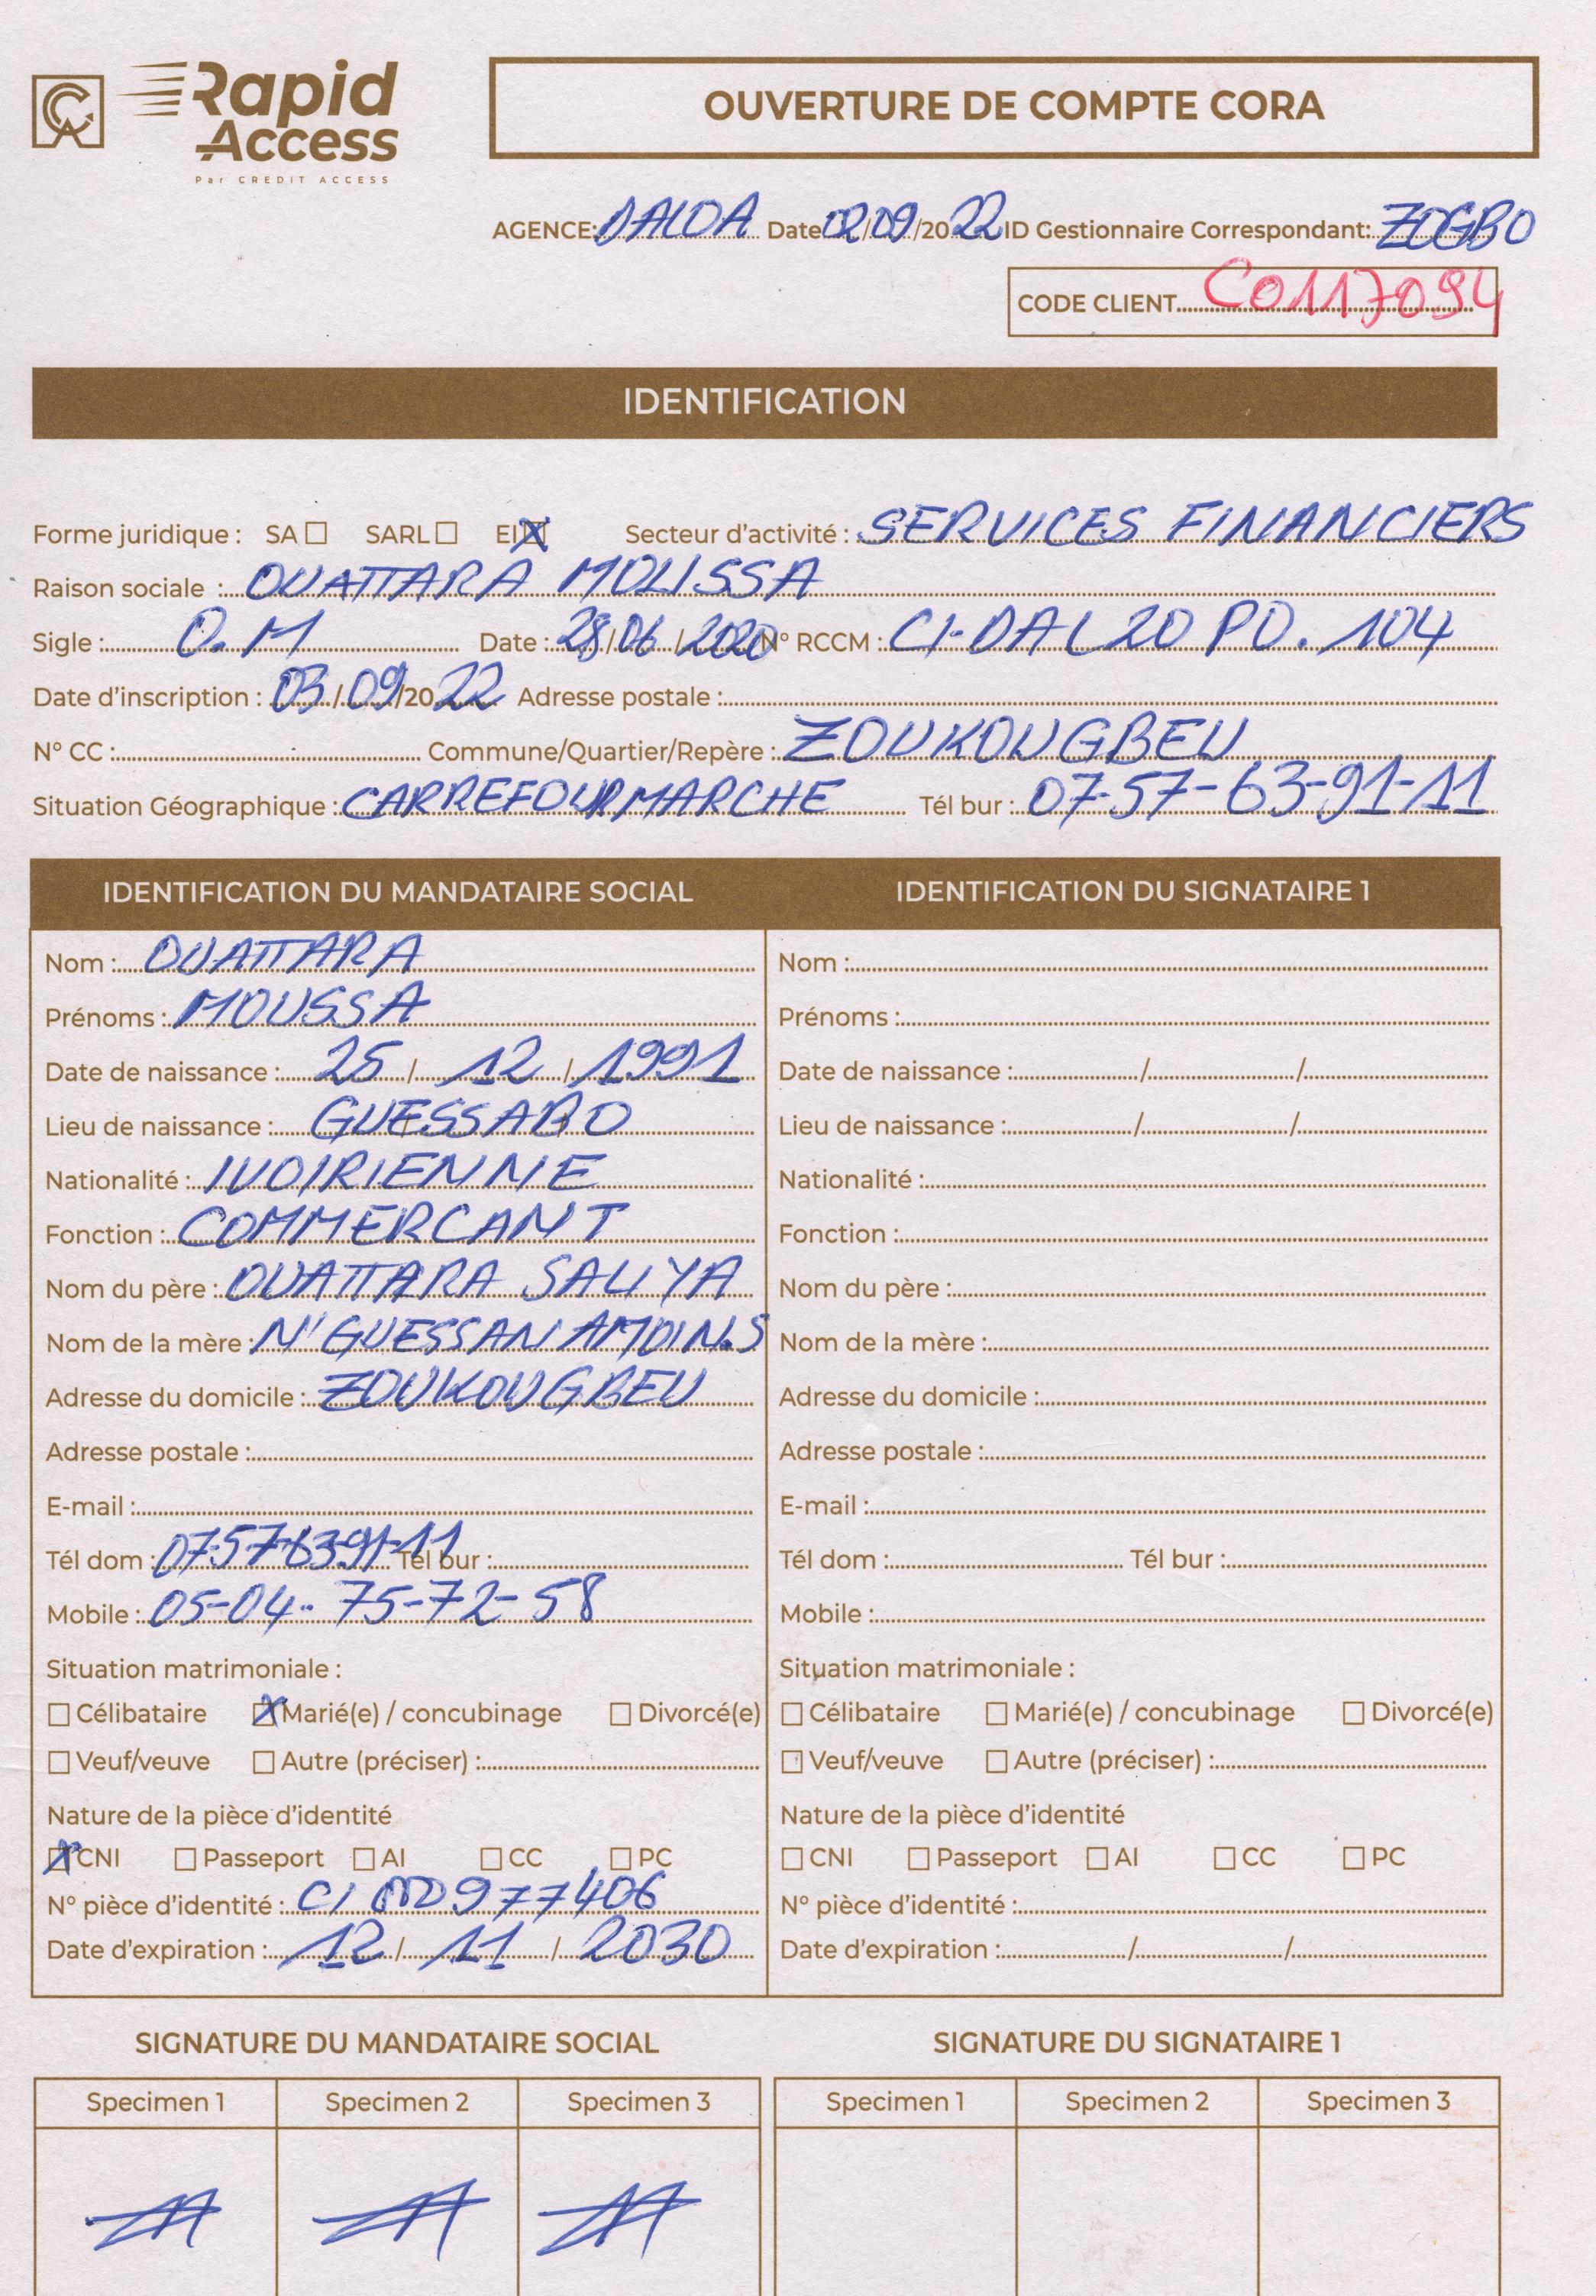 Rapid
Access
Par CREDIT ACCESS
OUVERTURE DE COMPTE CORA
AGENCE: DALOA Date 02/09/2022 ID Gestionnaire Correspondant: ZOGBO
CODE CLIENT C0117094
IDENTIFICATION
Forme juridique : SA ☐ SARL ☐ EI ☒ Secteur d'activité : SERVICES FINANCIERS
Raison sociale : OUATTARA MOUSSA
Sigle : O.M Date : 28/06/2020 N° RCCM : CI-DAL 20 PO. 104
Date d'inscription : 03/09/2022 Adresse postale :
N° CC : Commune/Quartier/Repère : ZOUKOUGBEU
Situation Géographique : CARREFOUR MARCHE Tél bur : 07-57-63-91-11
IDENTIFICATION DU MANDATAIRE SOCIAL
Nom : OUATTARA
Prénoms : MOUSSA
Date de naissance : 25 / 12 / 1991
Lieu de naissance : GUESSABO
Nationalité : IVOIRIENNE
Fonction : COMMERCANT
Nom du père : OUATTARA SALIYA
Nom de la mère : N'GUESSAN AMOIN.S
Adresse du domicile : ZOUKOUGBEU
Adresse postale :
E-mail :
Tél dom : 07-57-63-91-11 Tél bur :
Mobile : 05-04-75-72-58
Situation matrimoniale :
☐ Célibataire ☒ Marié(e) / concubinage ☐ Divorcé(e)
☐ Veuf/veuve ☐ Autre (préciser) :
Nature de la pièce d'identité
☒ CNI ☐ Passeport ☐ AI ☐ CC ☐ PC
N° pièce d'identité : CI 977406
Date d'expiration : 12 / 11 / 2030
IDENTIFICATION DU SIGNATAIRE 1
Nom :
Prénoms :
Date de naissance : / /
Lieu de naissance : / /
Nationalité :
Fonction :
Nom du père :
Nom de la mère :
Adresse du domicile :
Adresse postale :
E-mail :
Tél dom : Tél bur :
Mobile :
Situation matrimoniale :
☐ Célibataire ☐ Marié(e) / concubinage ☐ Divorcé(e)
☐ Veuf/veuve ☐ Autre (préciser) :
Nature de la pièce d'identité
☐ CNI ☐ Passeport ☐ AI ☐ CC ☐ PC
N° pièce d'identité :
Date d'expiration : / /
SIGNATURE DU MANDATAIRE SOCIAL
Specimen 1 Specimen 2 Specimen 3
SIGNATURE DU SIGNATAIRE 1
Specimen 1 Specimen 2 Specimen 3